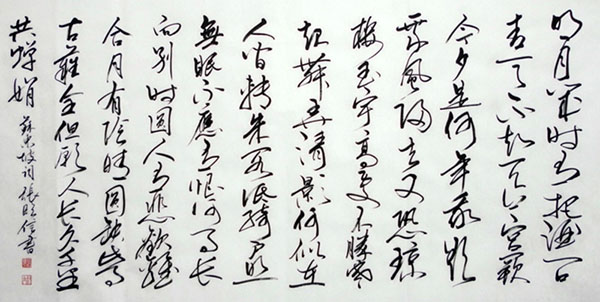 明月幾時有把酒問
青天不知天上宮闕
今夕是何年我欲
乘風歸去又恐瓊
樓玉宇高處不勝寒
起舞弄清影何似在
人間轉朱閣低綺戶照
無眠不應有恨何事長
向別時圓人有悲歡離
合月有陰晴圓缺此事
古難全但願人長久千里
共嬋娟 蘇東坡詞 張書